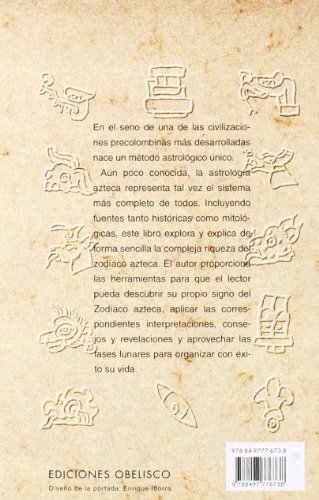 En el seno de una de las civilizacio-
nes precolombinas más desarrolladas
nace un método astrológico único.
Aún poco conocida, la astrología
azteca representa tal vez el sistema
más completo de todos. Incluyendo
fuentes tanto históricas como mitoló-
gicas, este libro explora y explica de
forma sencilla la compleja riqueza del
zodiaco azteca. El autor proporciona
las herramientas para que el lector
pueda descubrir su propio signo del
Zodiaco azteca, aplicar las corres-
pondientes interpretaciones, conse-
jos y revelaciones y aprovechar las
fases lunares para organizar con éxi-
to su vida.
978-84-9777-673-8
9 788497 776738
EDICIONES OBELISCO
Diseño de la portada: Enrique Iborra